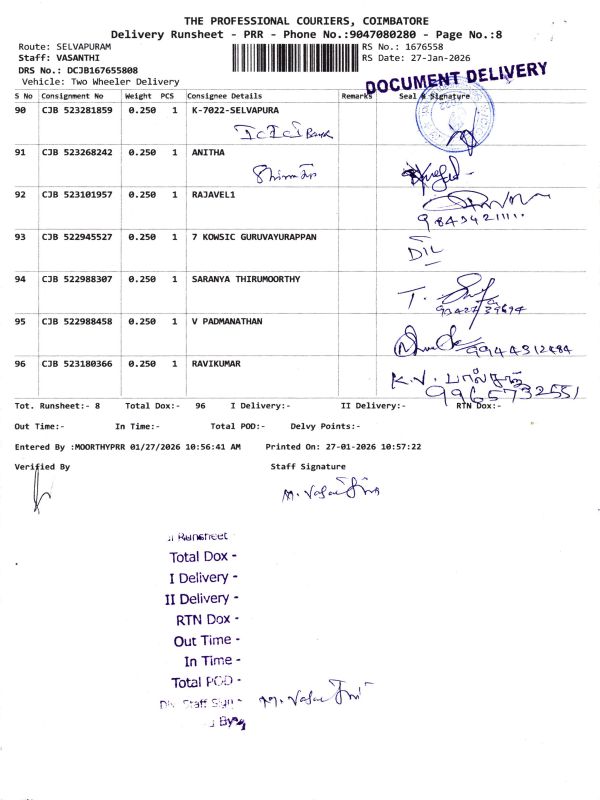 THE PROFESSIONAL COURIERS, COIMBATORE
Delivery Runsheet - PRR - Phone No.:9047080280 - Page No.:8
Route: SELVAPURAM RS No.: 1676558
Staff: VASANTHI RS Date: 27-Jan-2026
DRS No.: DCJB167655808
Vehicle: Two Wheeler Delivery
DOCUMENT DELIVERY
S No Consignment No Weight PCS Consignee Details Remarks Seal & Signature
90 CJB 523281859 0.250 1 K-7022-SELVAPURA
ICICI Bank
91 CJB 523268242 0.250 1 ANITHA
92 CJB 523101957 0.250 1 RAJAVEL1
9843421111
93 CJB 522945527 0.250 1 7 KOWSIC GURUVAYURAPPAN
94 CJB 522988307 0.250 1 SARANYA THIRUMOORTHY
95 CJB 522988458 0.250 1 V PADMANATHAN
9944312484
96 CJB 523180366 0.250 1 RAVIKUMAR
K.V.
9965732551
Tot. Runsheet:- 8 Total Dox:- 96 I Delivery:- II Delivery:- RTN Dox:-
Out Time:- In Time:- Total POD:- Delvy Points:-
Entered By :MOORTHYPRR 01/27/2026 10:56:41 AM Printed On: 27-01-2026 10:57:22
Verified By Staff Signature
Runsheet
Total Dox -
I Delivery -
II Delivery -
RTN Dox -
Out Time -
In Time -
Total POD -
Staff Sign -
By